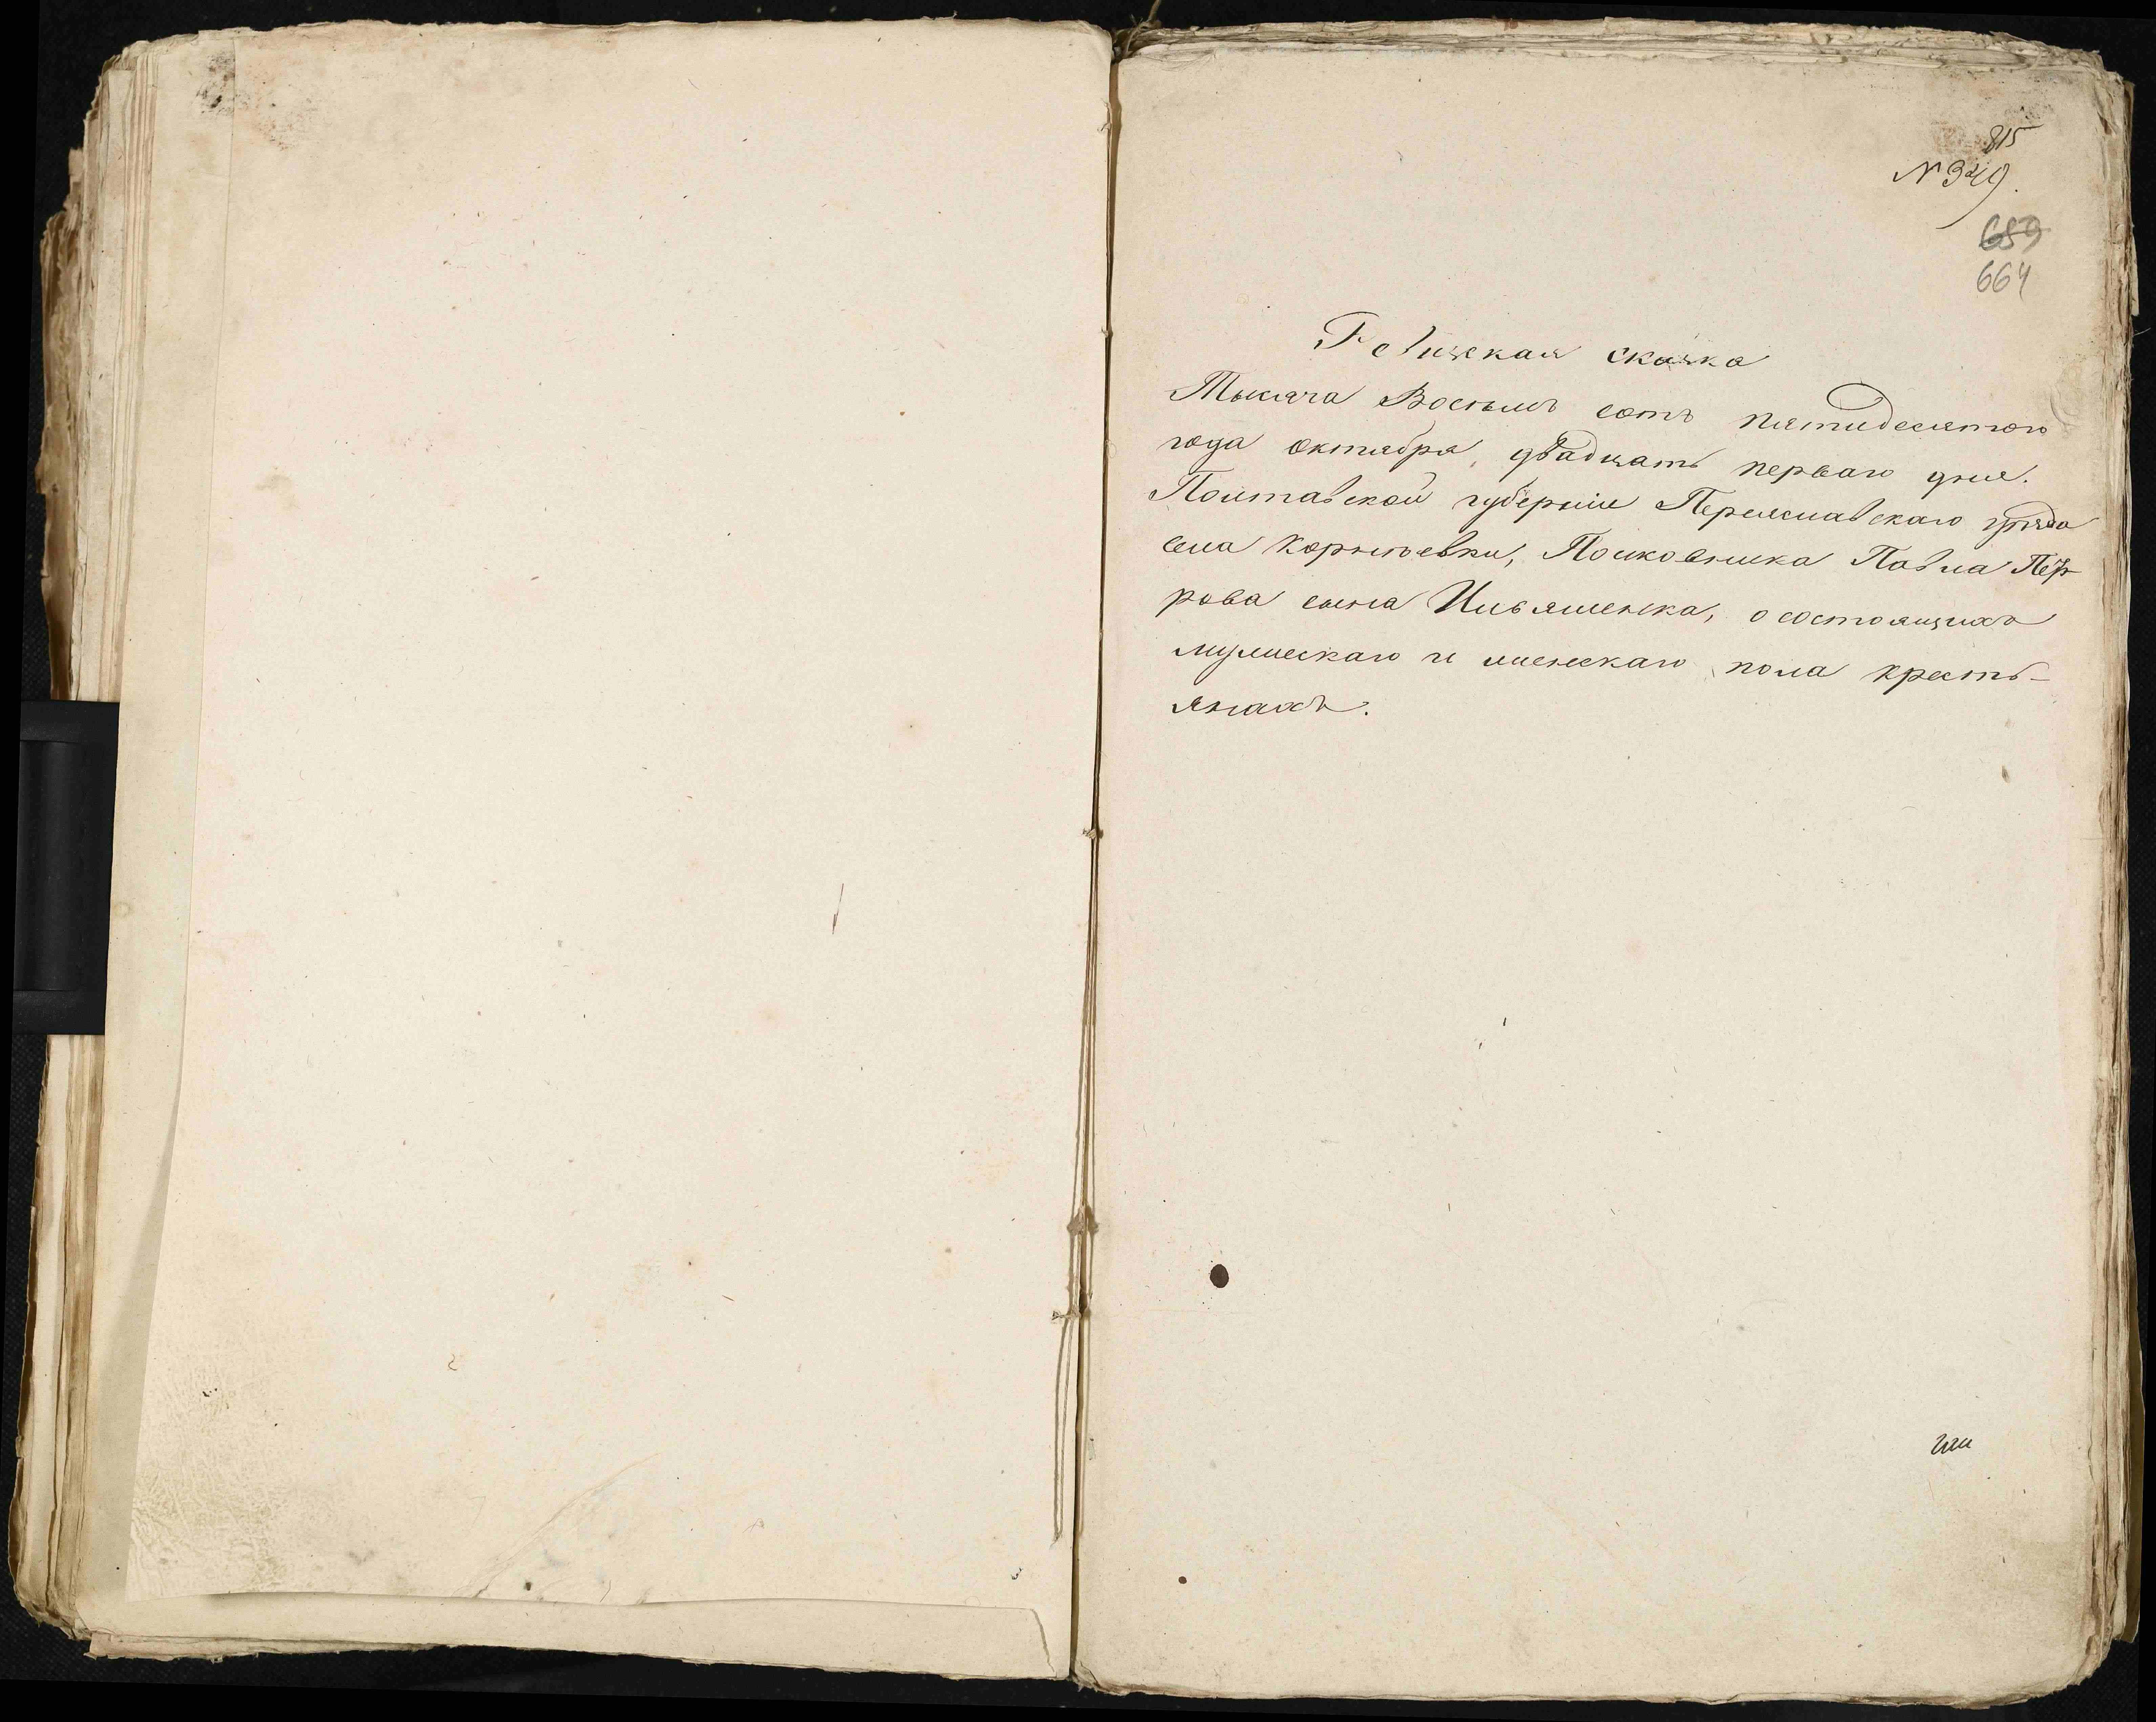 815
№ 349.
659
664
Ревизская сказка
Тысяча Восемь сотъ пятидесятого
года октября, двадцать перваго дня.
Полтавской губерніи Переяславскаго уѣзда
села Корнѣевки, Полковника Павла Пет
рова сына Ильяшенка, о состоящихъ
мужескаго и женскаго пола кресть-
янахъ.